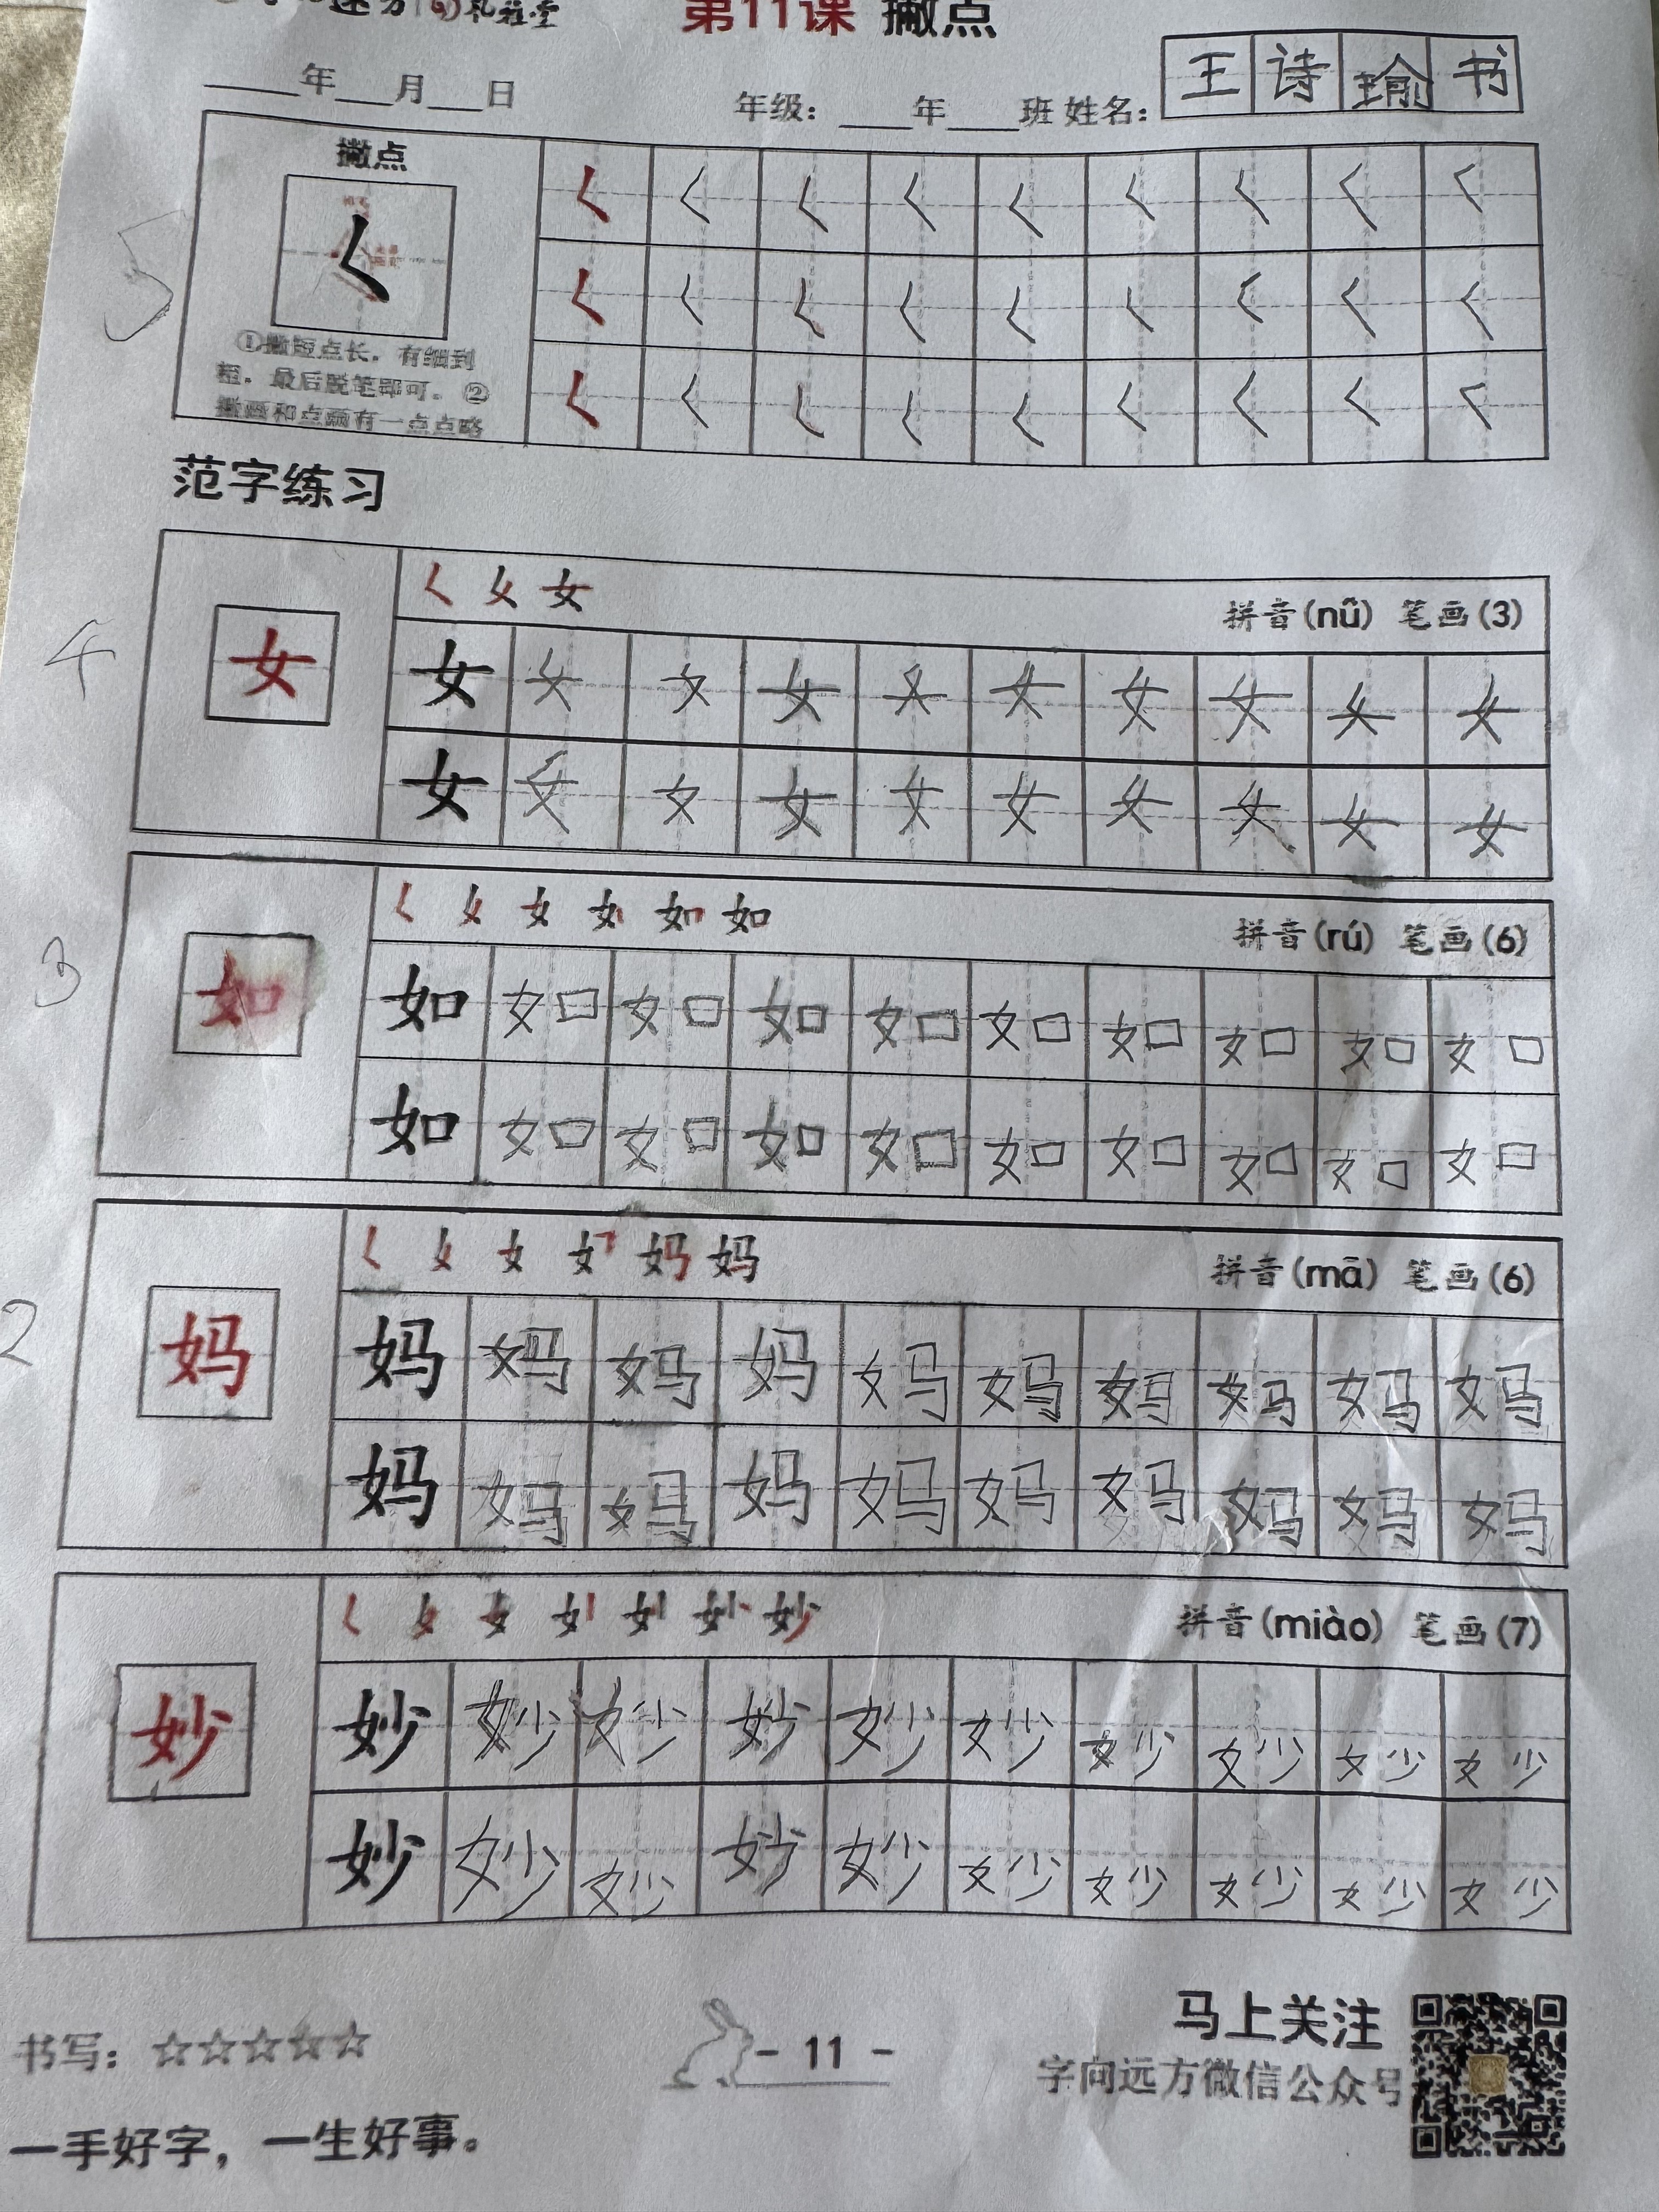 第11课 撇点
王诗瑜书
____年___月___日
年级：____年____班 姓名：
撇点
①撇短点长，有细到
粗，最后脱笔即可。②
撇画和点画有一点点略
5
范字练习
拼音(nǚ) 笔画(3)
4
女 女 女 女 女 女 女 女 女 女 女
女 女 女 女 女 女 女 女 女 女
拼音(rú) 笔画(6)
3
如 如 如 如 如 如 如 如 如 如 如
如 如 如 如 如 如 如 如 如 如
拼音(mā) 笔画(6)
2
妈 妈 妈 妈 妈 妈 妈 妈 妈 妈 妈
妈 妈 妈 妈 妈 妈 妈 妈 妈 妈
拼音(miào) 笔画(7)
妙 妙 妙 妙 妙 妙 妙 妙 妙 妙 妙
妙 妙 妙 妙 妙 妙 妙 妙 妙 妙
书写：☆☆☆☆☆
- 11 -
马上关注
字向远方微信公众号
一手好字，一生好事。